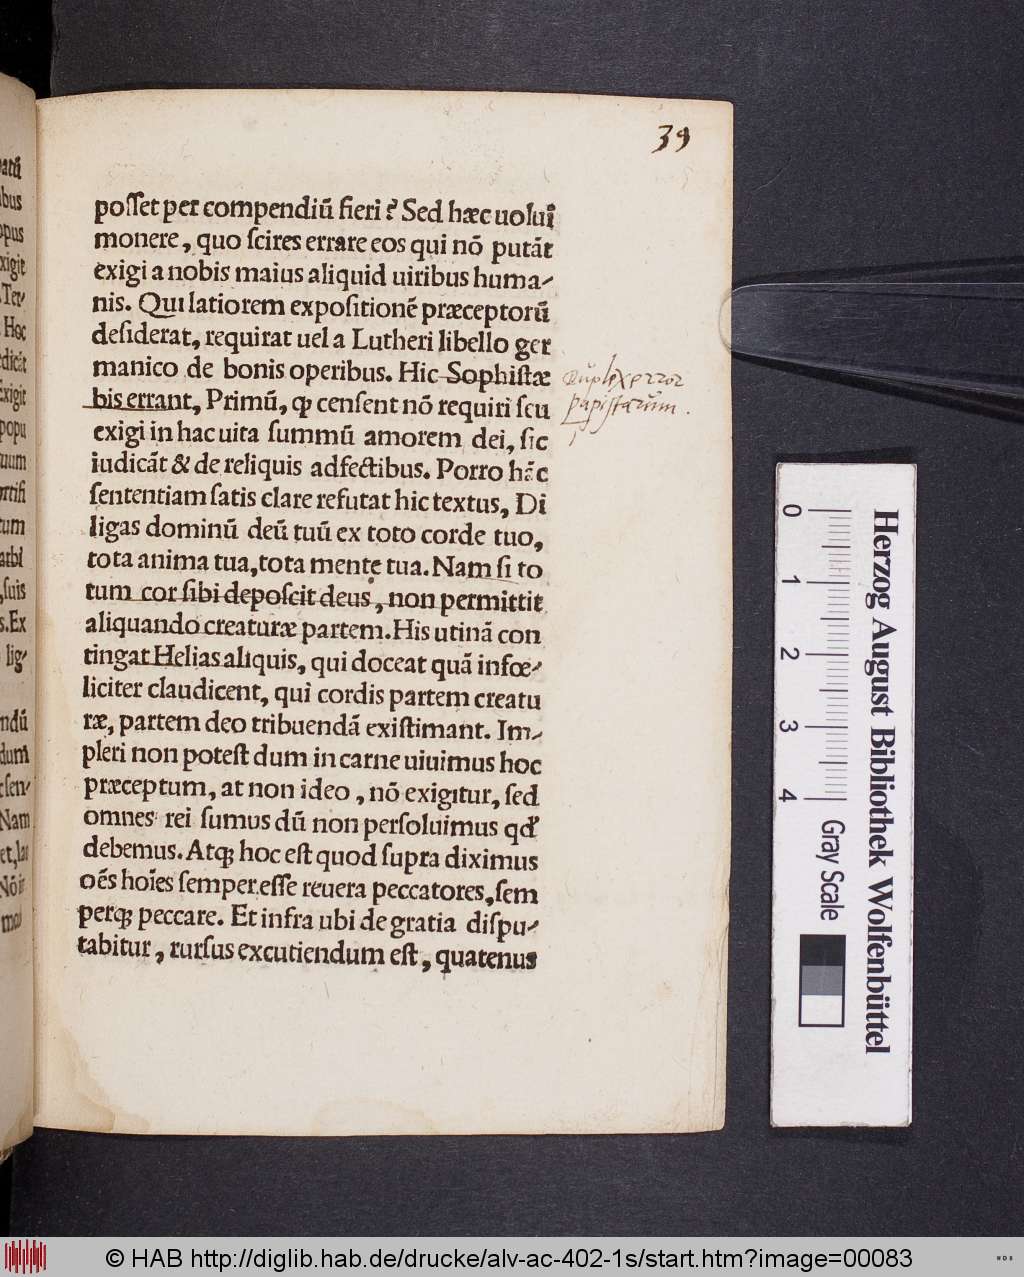 39
posſet per compendiū fieri? Sed hæc uoluī
monere, quo ſcires errare eos qui nō putāt
exigi a nobis maius aliquid uiribus huma-
nis. Qui latiorem expoſitionē præceptorū
deſiderat, requirat uel a Lutheri libello ger
manico de bonis operibus. Hic Sophiſtæ
bis errant, Primū, ꝙ cenſent nō requiri ſeu
exigi in hac uita ſummū amorem dei, ſic
iudicāt & de reliquis adfectibus. Porro hāc
ſententiam ſatis clare refutat hic textus, Di
ligas dominū deū tuū ex toto corde tuo,
tota anima tua, tota mente tua. Nam ſi to
tum cor ſibi depoſcit deus, non permittit
aliquando creaturæ partem. His utinā con
tingat Helias aliquis, qui doceat quā infœ-
liciter claudicent, qui cordis partem creatu
ræ, partem deo tribuendā exiſtimant. Im-
pleri non poteſt dum in carne uiuimus hoc
præceptum, at non ideo, nō exigitur, ſed
omnes rei ſumus dū non perſoluimus qd̛
debemus. Atqꝫ hoc eſt quod ſupra diximus
oēs hoīes ſemper eſſe reuera peccatores, ſem
perqꝫ peccare. Et infra ubi de gratia diſpu-
tabitur, rurſus excutiendum eſt, quatenus
Duplex error
papistarum.
1
atū
ibus
opus
xigit
Ter-
Hoc
edicāt
Exigit
popu
uum
ortifi
tum
ſuis
s. Ex
lig-
ndū
dum
ſen-
Nam
et, lar
0 1 2 3 4
Gray Scale
Herzog August Bibliothek Wolfenbüttel
© HAB http://diglib.hab.de/drucke/alv-ac-402-1s/start.htm?image=00083